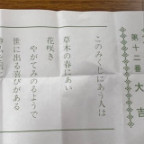 第十二番 大吉
このみくじにあう人は
草木の春にあい
花咲き
やがてみのるようで
世に出る喜びがある